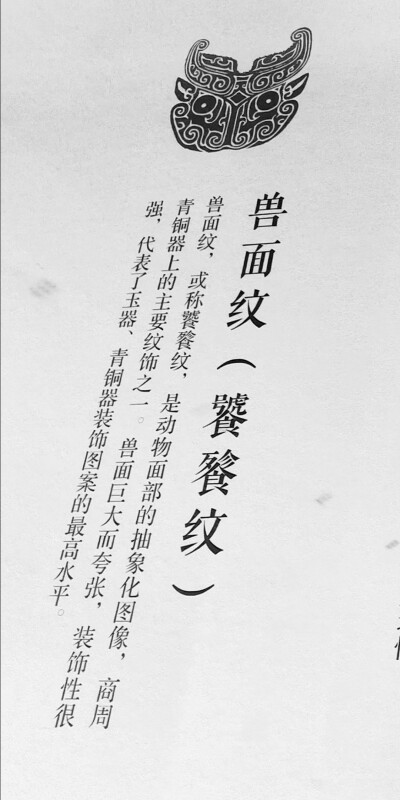 兽面纹（饕餮纹）
兽面纹，或称饕餮纹，是动物面部的抽象化图像，商周
青铜器上的主要纹饰之一。兽面巨大而夸张，装饰性很
强，代表了玉器、青铜器装饰图案的最高水平。